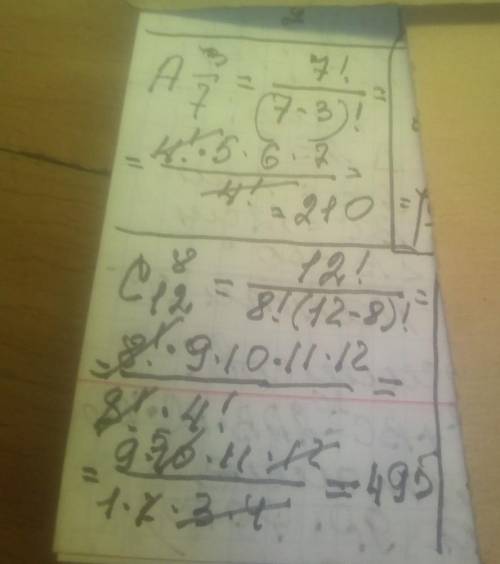 A 3/7 = 7!/(7-3)! =
= 4!·5·6·7/4! =
= 210
C 8 12 = 12!/8!(12-8)! =
= 8!·9·10·11·12/8!·4! =
= 9·10·11·12/1·2·3·4 = 495